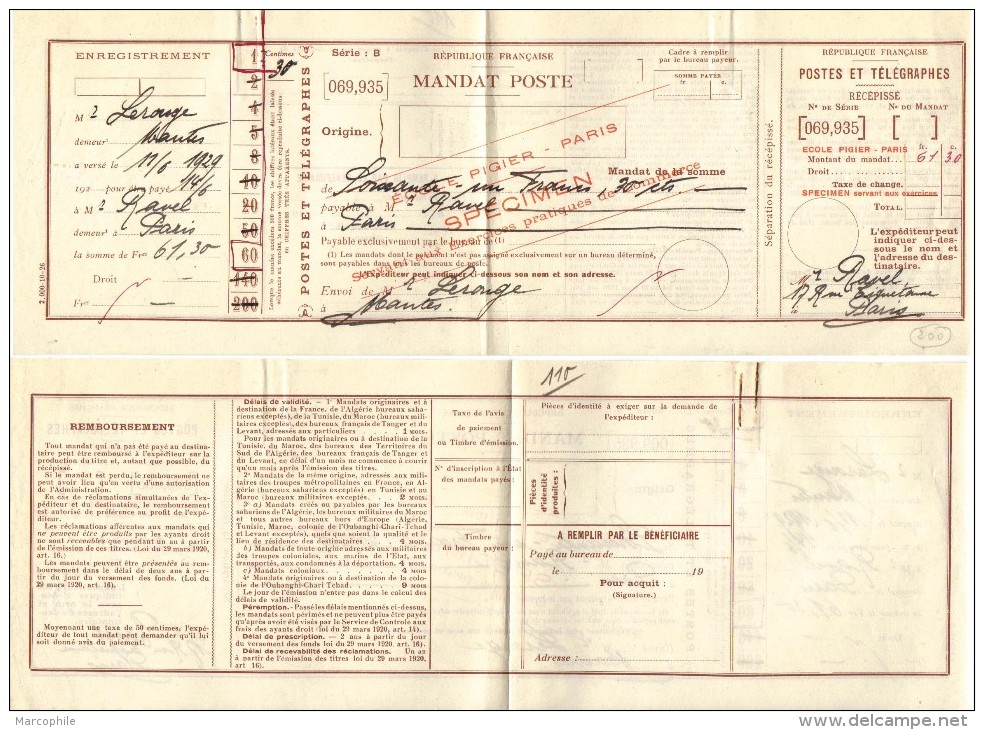 ENREGISTREMENT
Mr Lerouge
demeurt Mantes
a versé le 17/6 1929
192 pour être payé 14/6
à Mr Ravel
demeurt à Paris
la somme de Frs 61,30
Droit
Frs —
2.000-10-26
1
2
4
5
8
10
20
50
60
140
200
Centimes
30
POSTES ET TÉLÉGRAPHES
Série : B
069,935
RÉPUBLIQUE FRANÇAISE
MANDAT POSTE
Cadre à remplir
par le bureau payeur.
SOMME PAYÉE
fr. c.
Origine.
ECOLE PIGIER - PARIS
SPECIMEN
Servant aux exercices pratiques de commerce
Mandat de la somme
de Soixante-un Francs 30 cts
payable à Mr Ravel
à Paris
Payable exclusivement par le bureau de (1)
(1) Les mandats dont le paiement n'est pas assigné exclusivement sur un bureau déterminé,
sont payables dans tous les bureaux de poste.
L'expéditeur peut indiquer ci-dessous son nom et son adresse.
Envoi de Mr Lerouge
à Mantes.
Séparation du récépissé.
RÉPUBLIQUE FRANÇAISE
POSTES ET TÉLÉGRAPHES
RÉCÉPISSÉ
No DE SÉRIE No DU MANDAT
069,935
ECOLE PIGIER - PARIS fr. c.
Montant du mandat... 61 30
Droit
Taxe de change.
SPECIMEN servant aux exercices
TOTAL.
L'expéditeur peut
indiquer ci-des-
sous le nom et
l'adresse du des-
tinataire.
Mr Ravel
à Paris
200
110
REMBOURSEMENT
Tout mandat qui n'a pas été payé au destina-
taire peut être remboursé à l'expéditeur sur la
production du titre et, autant que possible, du
récépissé.
Si le mandat est perdu, le remboursement ne
peut avoir lieu qu'en vertu d'une autorisation
de l'Administration.
En cas de réclamations simultanées de l'ex-
péditeur et du destinataire, le remboursement
est autorisé de préférence au profit de l'expé-
diteur.
Les réclamations afférentes aux mandats qui
ne peuvent être produits par les ayants droit
ne sont recevables que pendant un an à partir
de l'émission de ces titres. (Loi du 29 mars 1920,
art. 16.)
Les mandats peuvent être présentés au rem-
boursement dans le délai de deux ans à par-
tir du jour du versement des fonds. (Loi du
29 mars 1920, art. 16).
Moyennant une taxe de 50 centimes, l'expé-
diteur de tout mandat peut demander qu'il lui
soit donné avis du paiement.
Délais de validité. — 1° Mandats originaires et à
destination de la France, de l'Algérie bureaux saha-
riens exceptés), de la Tunisie, du Maroc (bureaux mili-
taires exceptés), des bureaux français de Tanger et du
Levant, adressés aux particuliers . . . . 1 mois.
Pour les mandats originaires ou à destination de la
Tunisie, du Maroc, des bureaux des Territoires du
Sud de l'Algérie, des bureaux français de Tanger et
du Levant, ce délai d'un mois ne commence à courir
qu'un mois après l'émission des titres.
2° Mandats de la même origine, adressés aux mili-
taires des troupes métropolitaines en France, en Al-
gérie (bureaux sahariens exceptés) en Tunisie et au
Maroc (bureaux militaires exceptés. — 2 mois.
3° a) Mandats créés ou payables par les bureaux
sahariens de l'Algérie, les bureaux militaires du Maroc
et tous autres bureaux hors d'Europe (Algérie,
Tunisie, Maroc, colonie de l'Oubanghi-Chari-Tchad
et Levant exceptés), quels que soient la qualité et le
lieu de résidence des destinataires . . 4 mois.
b) Mandats de toute origine adressés aux militaires
des troupes coloniales, aux marins de l'Etat, aux
transportés, aux condamnés à la déportation. 4 mois.
c) Mandats coloniaux. . . . 4 mois.
4° Mandats originaires ou à destination de la colo-
nie de l'Oubanghi-Chari Tchad. . . 9 mois
Le jour de l'émission n'entre pas dans le calcul des
délais de validité.
Péremption. - Passé les délais mentionnés ci-dessus,
les mandats sont périmés et ne peuvent plus être payés
qu'après avoir été visés par le Service de Controle aux
frais des ayants droit (loi du 29 mars 1920, art. 14).
Délai de prescription. — 2 ans à partir du jour
du versement des fonds loi du 29 mars 1920, art. 16).
Délai de recevabilité des réclamations. Un an
à partir de l'émission des titres loi du 29 mars 1920,
art. 16).
Taxe de l'avis
de paiement
ou Timbre d'émission.
N° d'inscription à l'État
des mandats payés:
Timbre
du bureau payeur :
Pièces d'identité à exiger sur la demande de
l'expéditeur :
Pièces
d'identité
produites :
A REMPLIR PAR LE BÉNÉFICIAIRE
Payé au bureau de
le 19
Pour acquit :
(Signature.)
Adresse :
Marcophile
www.delcampe.net